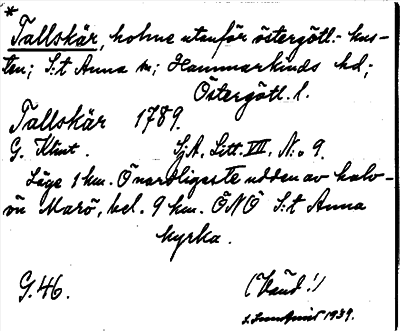 *
Tallskär, holme utanför östergötl.- kus-
ten; S:t Anna sn; Hammarkinds hd;
Östergötl. l.
Tallskär 1789.
G. Klint. SjA, Litt. VII, N:o 9.
Läge 1 km. Ö nordligaste udden av halv-
ön Marö, bel. 9 km. ÖNÖ S:t Anna
kyrka.
G. 46. (Vänd!)
1939.